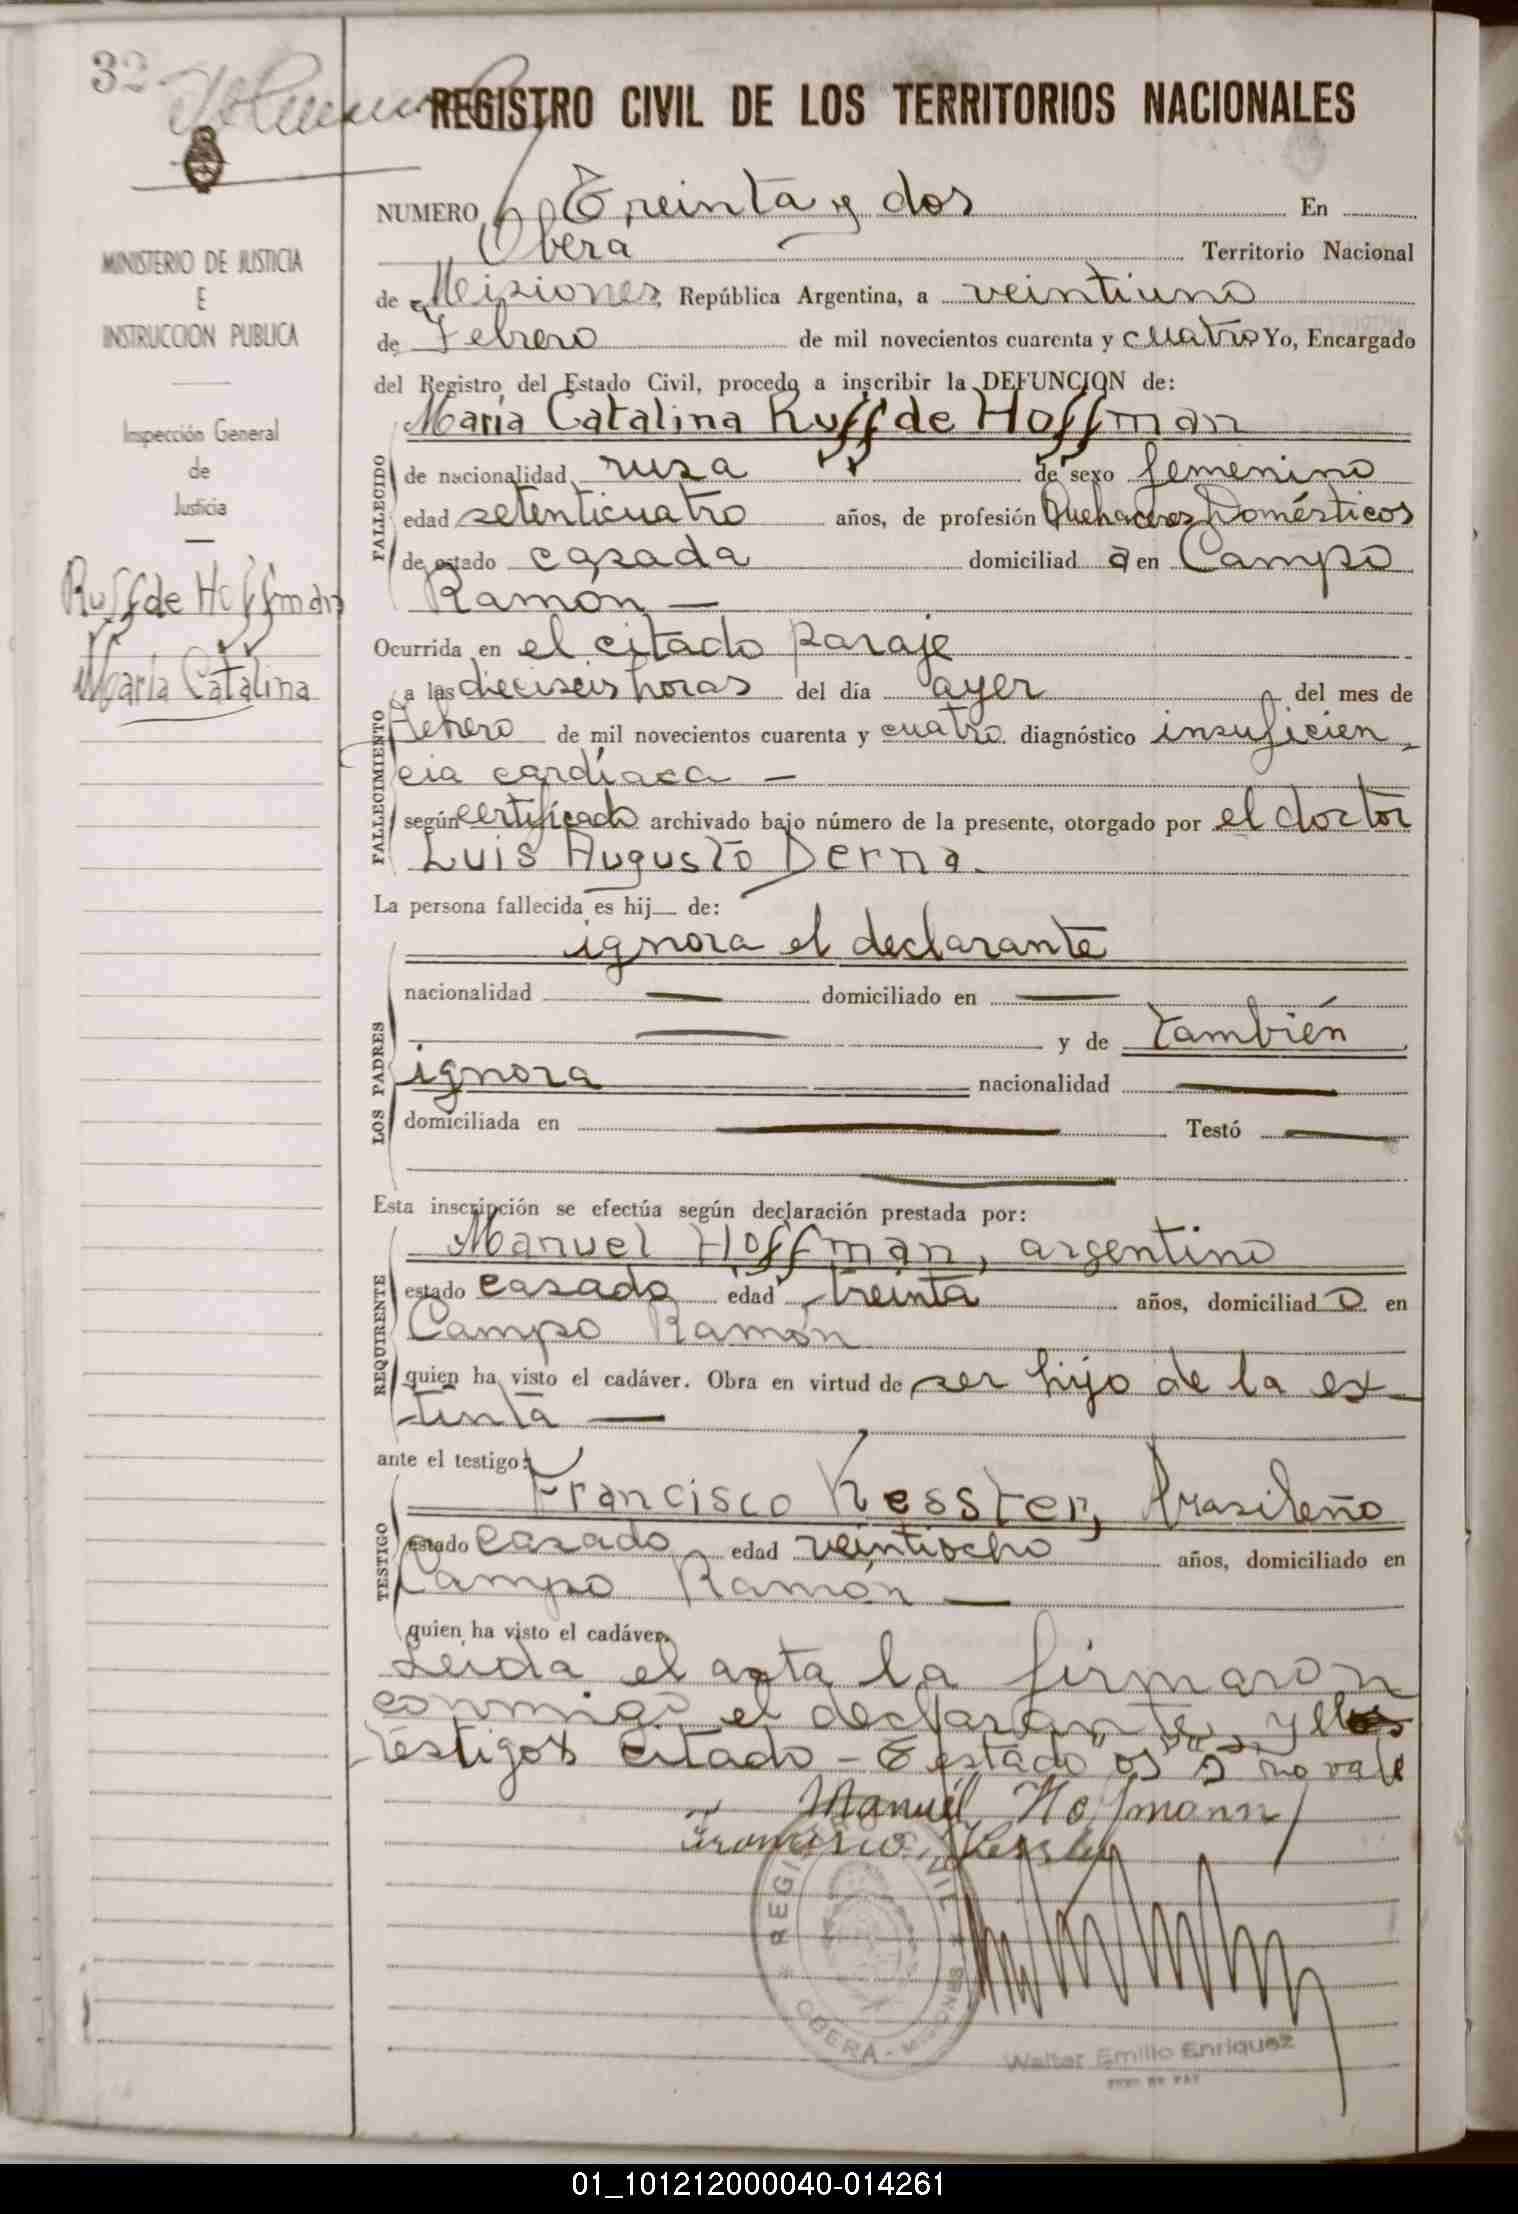 32
REGISTRO CIVIL DE LOS TERRITORIOS NACIONALES
MINISTERIO DE JUSTICIA
E
INSTRUCCION PUBLICA
Inspección General
de
Justicia
Ruff de Hoffman
María Catalina
NUMERO Treinta y dos En
Oberá Territorio Nacional
de Misiones, República Argentina, a veintiuno
de Febrero de mil novecientos cuarenta y cuatro Yo, Encargado
del Registro del Estado Civil, procedo a inscribir la DEFUNCION de:
María Catalina Ruff de Hoffman
FALLECIDO
de nacionalidad rusa de sexo femenino
edad setenticuatro años, de profesión Quehaceres Domésticos
de estado casada domiciliad a en Campo
Ramón —
Ocurrida en el citado paraje
FALLECIMIENTO
a las dieciseis horas del día ayer del mes de
febrero de mil novecientos cuarenta y cuatro diagnóstico insuficien-
cia cardíaca —
según certificado archivado bajo número de la presente, otorgado por el doctor
Luis Augusto Derna.
La persona fallecida es hij de:
LOS PADRES
ignora el declarante
nacionalidad — domiciliado en —
— y de también
ignora nacionalidad —
domiciliada en — Testó —
Esta inscripción se efectúa según declaración prestada por:
REQUIRENTE
Manuel Hoffman, argentino
estado casado edad treinta años, domiciliad o en
Campo Ramón
quien ha visto el cadáver. Obra en virtud de ser hijo de la ex-
tinta —
ante el testigo:
TESTIGO
Francisco Kesster, brasileño
estado casado edad veintiocho años, domiciliado en
Campo Ramón —
quien ha visto el cadáver.
Leida el acta la firmaron
conmigo el declarante y el
testigos citado - Testado "os" "s" no vale
Manuel Hoffmann
Francisco Kessler
REGISTRO CIVIL
* OBERÁ - MISIONES *
Walter Emilio Enriquez
JUEZ DE PAZ
01_101212000040-014261